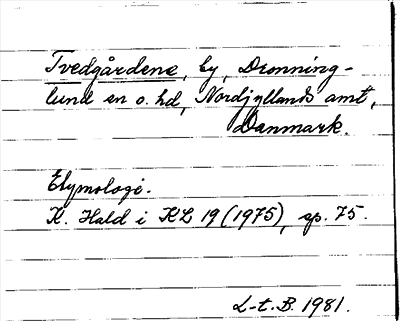 Tvedgårdene, by, Dronning-
lund sn o. hd, Nordjyllands amt,
Danmark.
Etymologi.
K. Hald i KL 19 (1975), sp. 75.
L-t. B. 1981.